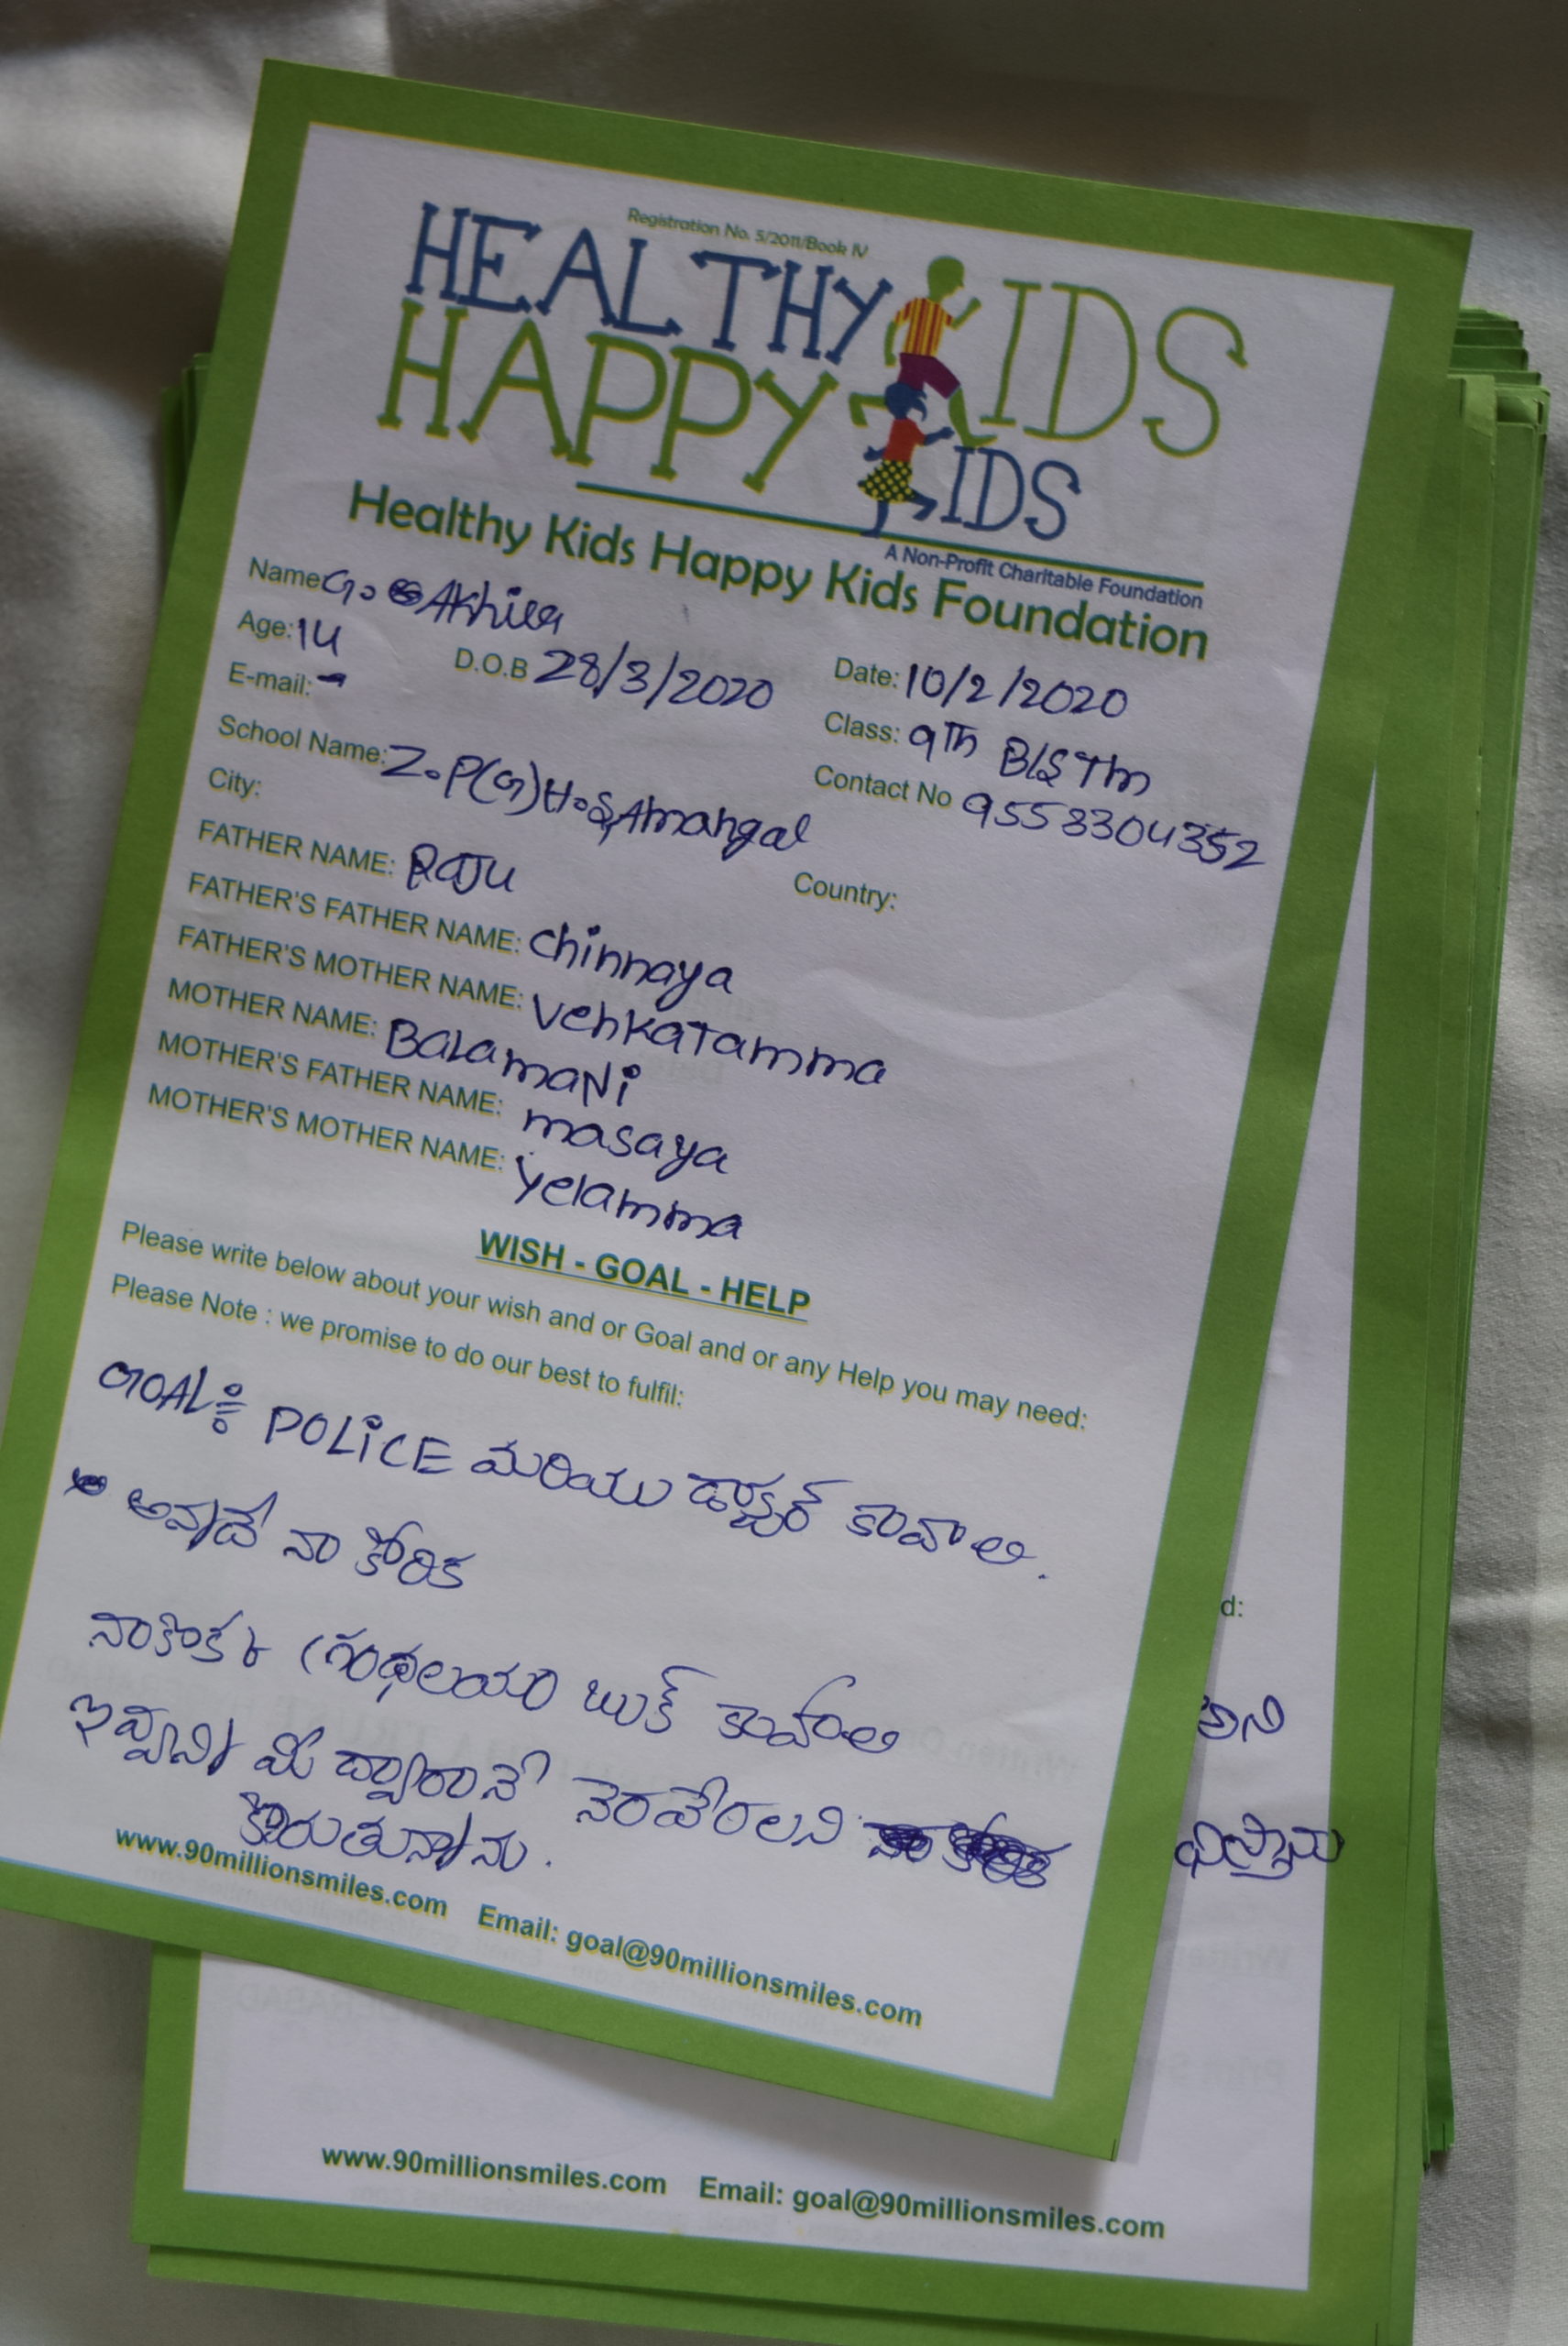 Registration No. 5/2011/Book IV
HEALTHY KIDS
HAPPY KIDS
A Non-Profit Charitable Foundation
Healthy Kids Happy Kids Foundation
Name: G. Akhila
Age: 14 D.O.B 28/3/2020 Date: 10/2/2020
E-mail: - Class: 9Th
School Name: Z.P(G)H.S, Amangal Contact No 9558304352
City: Country:
FATHER NAME: RAJU
FATHER'S FATHER NAME: chinnaya
FATHER'S MOTHER NAME: Venkatamma
MOTHER NAME: Balamani
MOTHER'S FATHER NAME: masaya
MOTHER'S MOTHER NAME: yelamma
WISH - GOAL - HELP
Please write below about your wish and or Goal and or any Help you may need:
Please Note : we promise to do our best to fulfil:
GOAL: POLiCE మరియు డాక్టర్ కావాలి.
అన్నదే నా కోరిక
నాకొక్క గ్రంథలయం బుక్ కావాలి
ఇవ్వన్ని మీ ద్వారానే నెరవేరలని
కోరుతున్నాను.
www.90millionsmiles.com Email: goal@90millionsmiles.com
d:
అని
www.90millionsmiles.com Email: goal@90millionsmiles.com